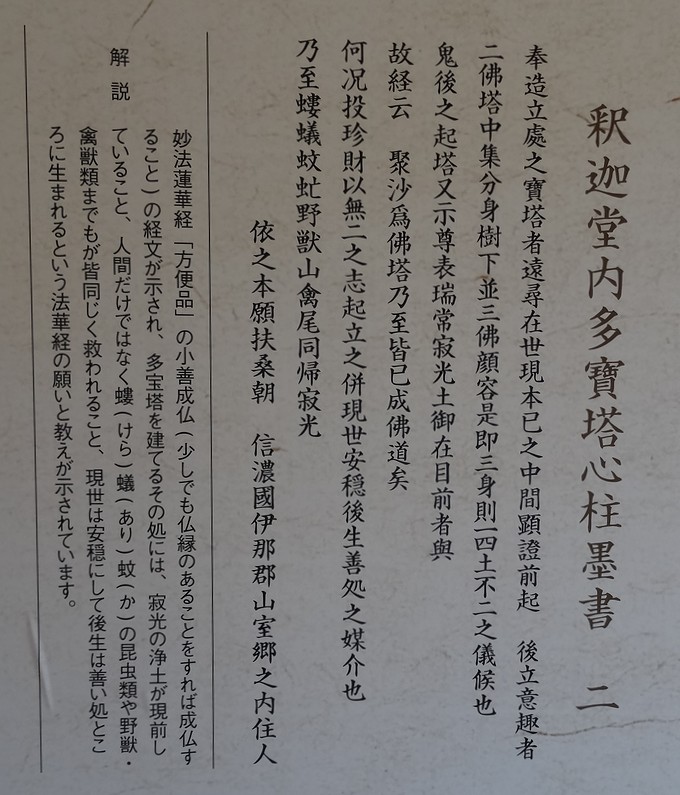 釈迦堂内多寶塔心柱墨書　二
奉造立處之寶塔者遠尋在世現本已之中間顕證前起　後立意趣者
二佛塔中集分身樹下並三佛顔容是即三身則一四土不二之儀候也
鬼後之起塔又示尊表瑞常寂光土御在目前者與
故経云　聚沙爲佛塔乃至皆已成佛道矣
何况投珍財以無二之志起立之併現世安穏後生善処之媒介也
乃至螻蟻蚊虻野獣山禽尾同帰寂光
依之本願扶桑朝　信濃國伊那郡山室郷之内住人
解説
妙法蓮華経「方便品」の小善成仏(少しでも仏縁のあることをすれば成仏す
ること)の経文が示され、多宝塔を建てるその処には、寂光の浄土が現前し
ていること、人間だけではなく螻(けら)蟻(あり)蚊(か)の昆虫類や野獣・
禽獣類までもが皆同じく救われること、現世は安穏にして後生は善い処とこ
ろに生まれるという法華経の願いと教えが示されています。